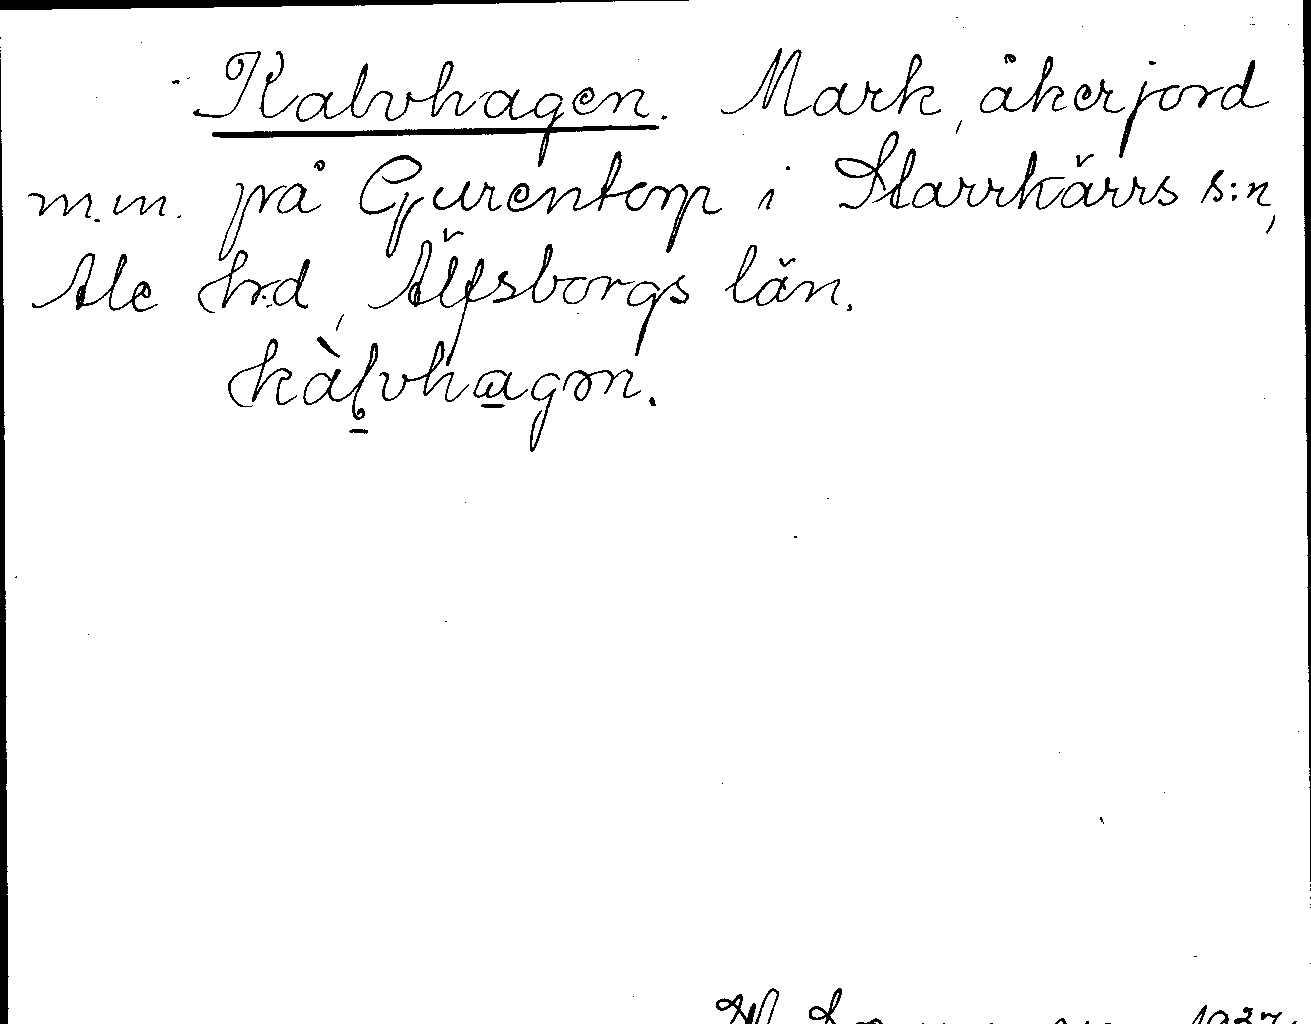 Kalvhagen. Mark, åkerjord
m.m. på Gurentorp i Starrkärrs s:n,
Ale hrd, Älfsborgs län.
kàl̥vhagən.
1937.